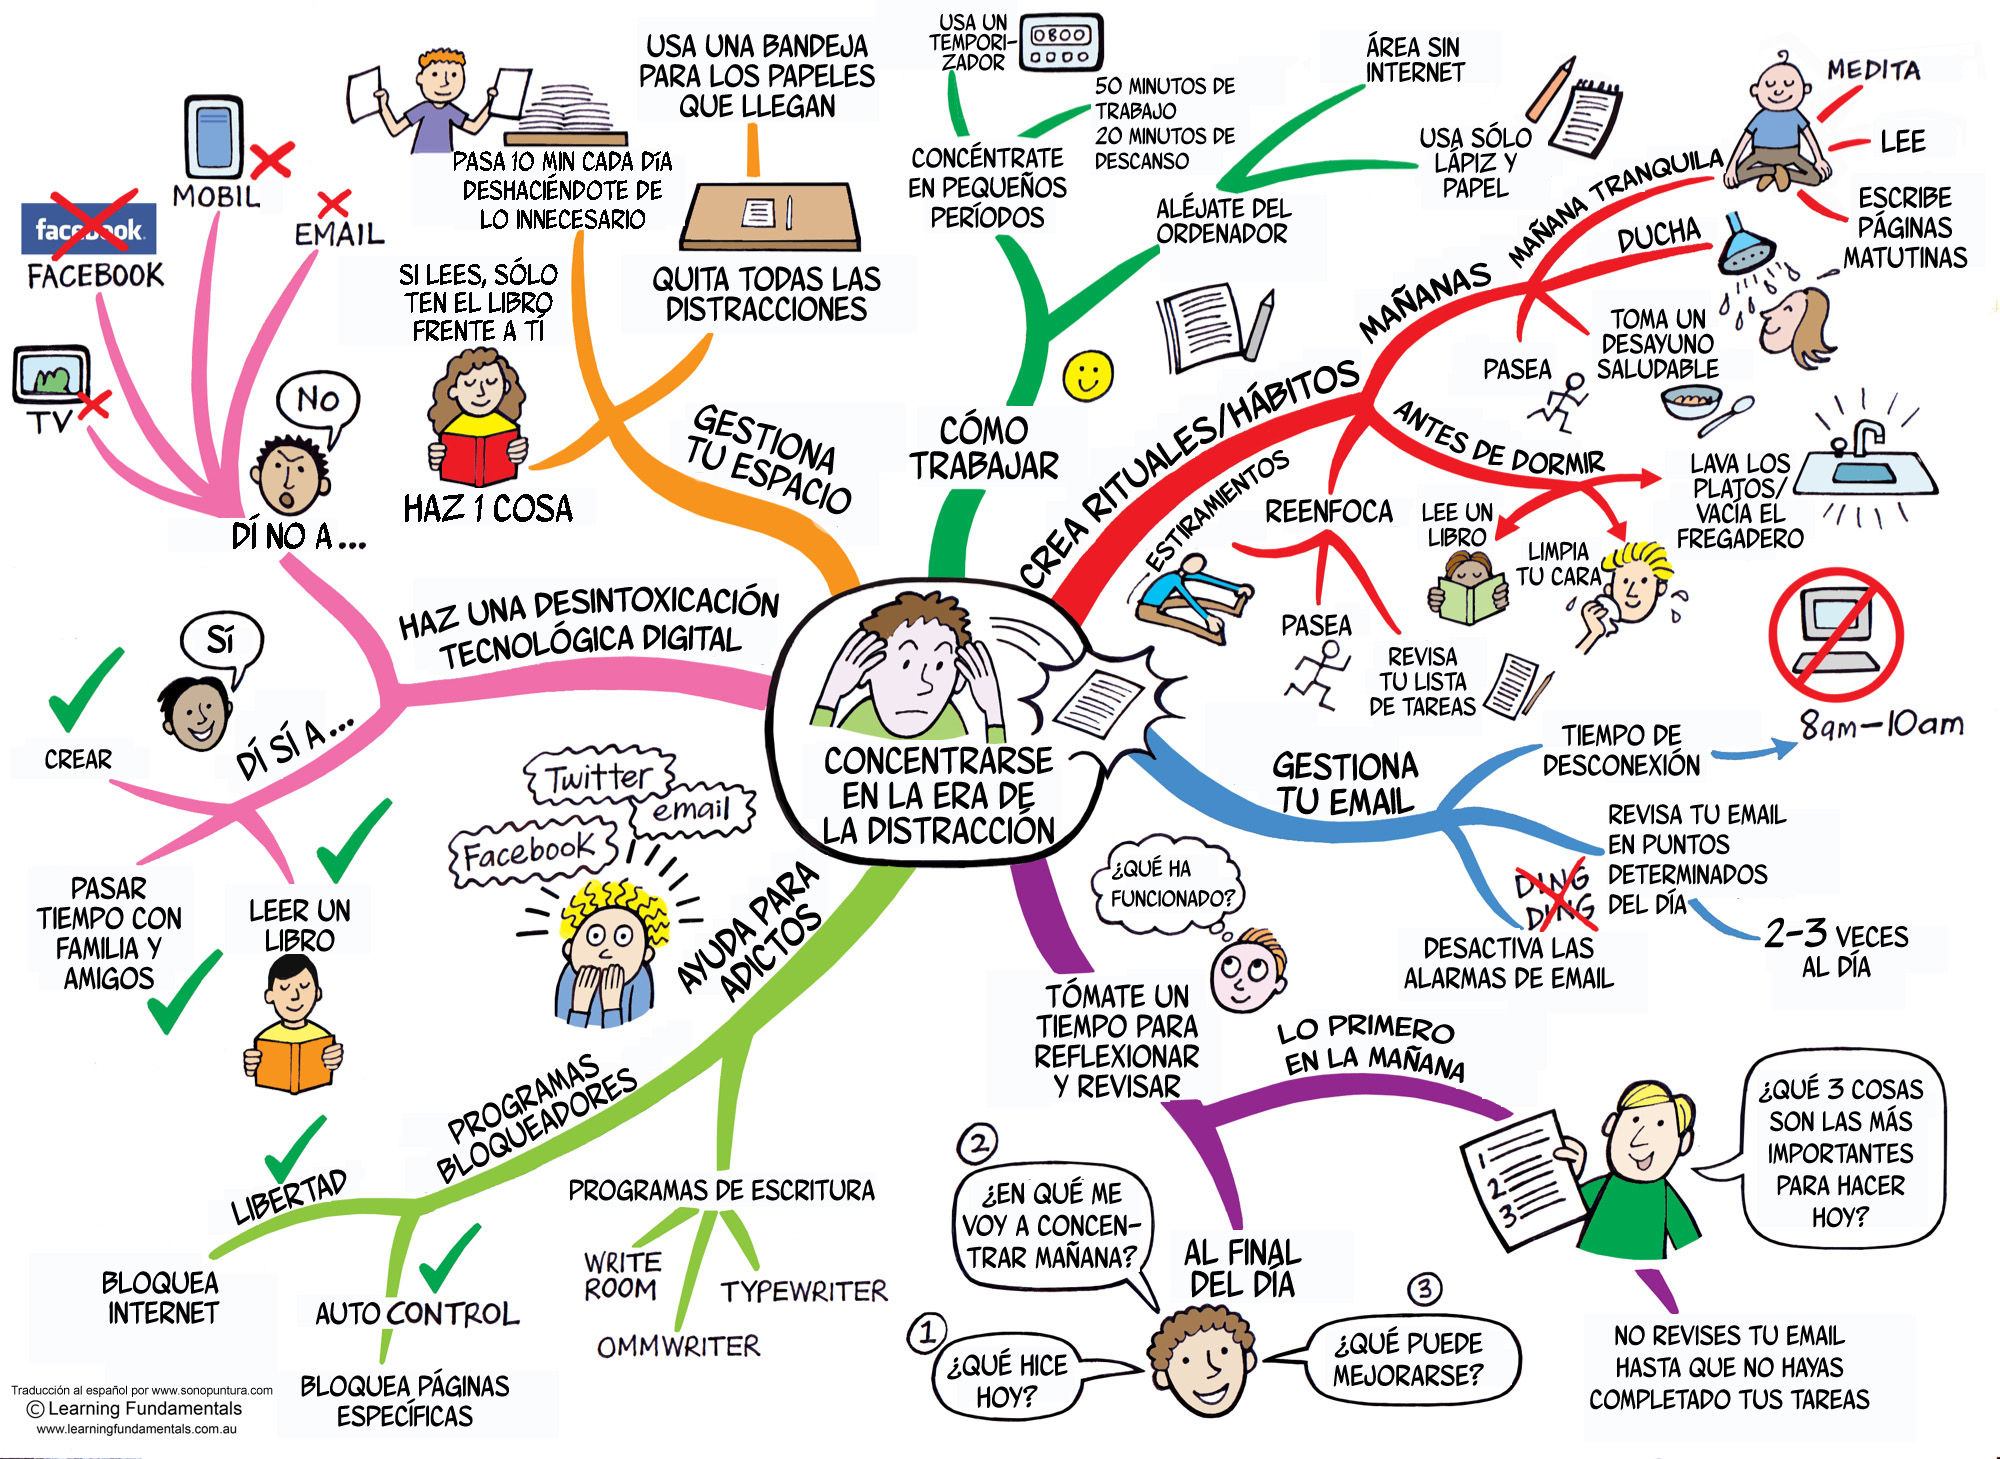 CONCENTRARSE
EN LA ERA DE
LA DISTRACCIÓN
USA UN
TEMPORI-
ZADOR
0800
50 MINUTOS DE
TRABAJO
20 MINUTOS DE
DESCANSO
CONCÉNTRATE
EN PEQUEÑOS
PERÍODOS
ÁREA SIN
INTERNET
USA SÓLO
LÁPIZ Y
PAPEL
ALÉJATE DEL
ORDENADOR
CÓMO
TRABAJAR
CREA RITUALES/HÁBITOS
MAÑANAS
MAÑANA TRANQUILA
MEDITA
LEE
ESCRIBE
PÁGINAS
MATUTINAS
DUCHA
TOMA UN
DESAYUNO
SALUDABLE
PASEA
ANTES DE DORMIR
LAVA LOS
PLATOS/
VACÍA EL
FREGADERO
LEE UN
LIBRO
LIMPIA
TU CARA
REENFOCA
ESTIRAMIENTOS
PASEA
REVISA
TU LISTA
DE TAREAS
GESTIONA
TU EMAIL
TIEMPO DE
DESCONEXIÓN
8am-10am
REVISA TU EMAIL
EN PUNTOS
DETERMINADOS
DEL DÍA
2-3 VECES
AL DÍA
DING
DING
DESACTIVA LAS
ALARMAS DE EMAIL
¿QUÉ HA
FUNCIONADO?
TÓMATE UN
TIEMPO PARA
REFLEXIONAR
Y REVISAR
LO PRIMERO
EN LA MAÑANA
1
2
3
¿QUÉ 3 COSAS
SON LAS MÁS
IMPORTANTES
PARA HACER
HOY?
NO REVISES TU EMAIL
HASTA QUE NO HAYAS
COMPLETADO TUS TAREAS
AL FINAL
DEL DÍA
1
¿QUÉ HICE
HOY?
2
¿EN QUÉ ME
VOY A CONCEN-
TRAR MAÑANA?
3
¿QUÉ PUEDE
MEJORARSE?
AYUDA PARA
ADICTOS
Twitter
email
Facebook
PROGRAMAS
BLOQUEADORES
LIBERTAD
BLOQUEA
INTERNET
AUTO CONTROL
BLOQUEA PÁGINAS
ESPECÍFICAS
PROGRAMAS DE ESCRITURA
WRITE
ROOM
OMMWRITER
TYPEWRITER
HAZ UNA DESINTOXICACIÓN
TECNOLÓGICA DIGITAL
DÍ NO A...
NO
TV
facebook
FACEBOOK
MOBIL
EMAIL
DÍ SÍ A...
SÍ
CREAR
PASAR
TIEMPO CON
FAMILIA Y
AMIGOS
LEER UN
LIBRO
GESTIONA
TU ESPACIO
PASA 10 MIN CADA DÍA
DESHACIÉNDOTE DE
LO INNECESARIO
USA UNA BANDEJA
PARA LOS PAPELES
QUE LLEGAN
QUITA TODAS LAS
DISTRACCIONES
SI LEES, SÓLO
TEN EL LIBRO
FRENTE A TÍ
HAZ 1 COSA
Traducción al español por www.sonopuntura.com
© Learning Fundamentals
www.learningfundamentals.com.au